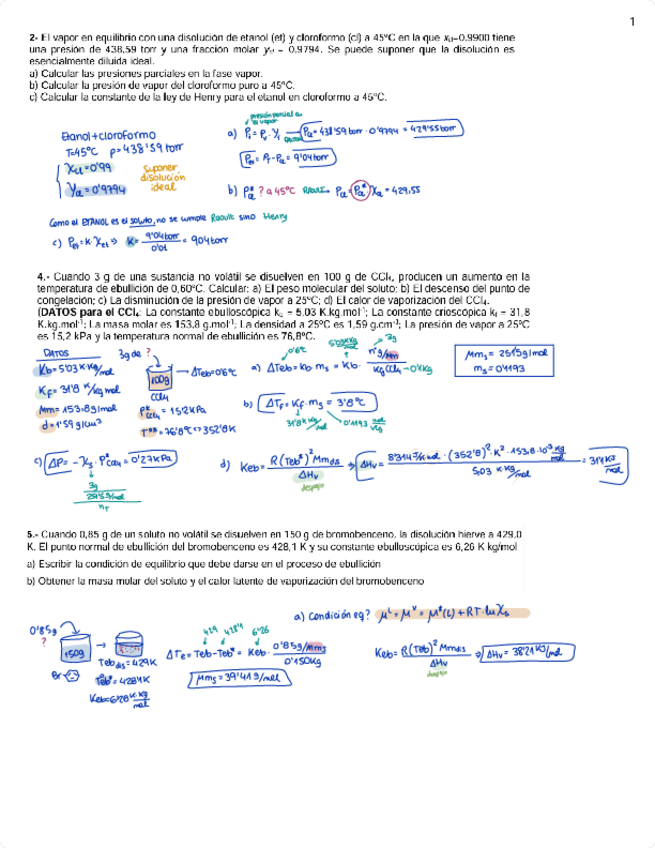 1
2- El vapor en equilibrio con una disolución de etanol (et) y cloroformo (cl) a 45°C en la que xcl=0.9900 tiene
una presión de 438,59 torr y una fracción molar ycl = 0.9794. Se puede suponer que la disolución es
esencialmente diluida ideal.
a) Calcular las presiones parciales en la fase vapor.
b) Calcular la presión de vapor del cloroformo puro a 45°C.
c) Calcular la constante de la ley de Henry para el etanol en cloroformo a 45°C.
presión parcial de vapor
Etanol+cloroformo
T=45°C p=438'59 torr
Xcl=0'99
Ycl=0'9794
suponer
disolución
ideal
a) Pi = PT · Yi Pcl = 438'59 torr · 0'9794 = 429'55 torr
Pet = PT - Pcl = 9'04 torr
b) P*cl ? a 45°C RAOULT Pcl = P*cl Xcl = 429,55
Como el ETANOL es el soluto, no se cumple Raoult sino Henry
c) Pet = K · Xet ⇒ K = 9'04 torr / 0'01 = 904 torr
4.- Cuando 3 g de una sustancia no volátil se disuelven en 100 g de CCl₄, producen un aumento en la
temperatura de ebullición de 0,60°C. Calcular: a) El peso molecular del soluto; b) El descenso del punto de
congelación; c) La disminución de la presión de vapor a 25°C; d) El calor de vaporización del CCl₄.
(DATOS para el CCl₄: La constante ebulloscópica k = 5,03 K.kg.mol⁻¹; La constante crioscópica kf = 31,8
K.kg.mol⁻¹; La masa molar es 153,8 g.mol⁻¹; La densidad a 25°C es 1,59 g.cm⁻³; La presión de vapor a 25°C
es 15,2 kPa y la temperatura normal de ebullición es 76,8°C.
DATOS 3g de ?
Kb = 5'03 K·Kg/mol
Kf = 31'8 K/kg mol
Mm = 153'8 g/mol
d = 1'59 g/cm³
100g
CCl4
ΔTeb = 0'6°C
P*CCl4 = 15'2 KPa
T = 76'8°C ⇒ 352'8K
0'6°C
5'03 K kg/mol
3g
a) ΔTeb = Kb · ms = Kb · n° g/Mm / Kg CCl4 → 0'1Kg
Mms = 251'5 g/mol
ms = 0'1193
b) ΔTf = Kf · ms = 3'8°C
31'8 K kg/mol 0'1193 mol/kg
c) ΔP = - Xs · P*CCl4 = 0'27 KPa
3g
251'5 g/mol
nT
d) Keb = R(Teb*)² Mmdis / ΔHv ⇒ ΔHv = 8'314 J/K·mol · (352'8)² · K² · 153,8 · 10⁻³ kg/mol / 5,03 K·Kg/mol = 31'4 KJ/mol
despejo
5.- Cuando 0,85 g de un soluto no volátil se disuelven en 150 g de bromobenceno, la disolución hierve a 429,0
K. El punto normal de ebullición del bromobenceno es 428,1 K y su constante ebulloscópica es 6,26 K kg/mol
a) Escribir la condición de equilibrio que debe darse en el proceso de ebullición
b) Obtener la masa molar del soluto y el calor latente de vaporización del bromobenceno
a) Condición eq? μL = μV = μ*(L) + RT · ln Xs
0'85g
?
150g
Br
Teb dis = 429K
Teb* = 428'1K
Keb = 6'26 K·Kg/mol
429 428'1 6'26
ΔTe = Teb - Teb* = Keb · 0'85g/Mms / 0'150Kg
Mms = 39'41 g/mol
Keb = R(Teb)² Mmdis / ΔHv ⇒ ΔHv = 38'21 KJ/mol
despejo